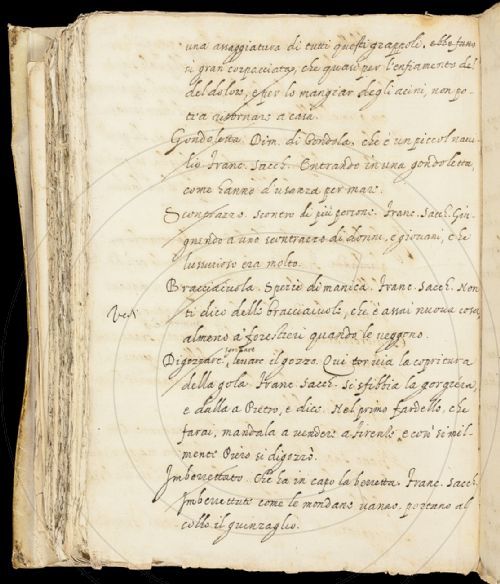 una assaggiatura di tutti questi grappoli, ebbe fano
sì gran corpacciata, che quasi per l'enfiamento del
del dolore, e per lo mangiar degli acini, non po-
tea ritornare a casa.
Gondoletta. Dim. di Gondola, che è un piccol navi-
lio. Franc. Sacch. Entrando in una gondoletta,
come hanno d'usanza per mare.
Scontrazzo. Scontro di più persone. Franc. Sacch. Giu-
gnendo a uno scontrazzo di donne, e giovani, e che
lussurioso era molto.
Bracciaiuola. Spezie di manica. Franc. Sacch. Non
Ved.
ti dico delle bracciaiuole, che è assai nuova cosa,
almeno a' forestieri quando le veggono.
Digozzare, levare il gozzo. Qui tor via la copritura
della gola. Franc. Sacch. Si sfibbia la gorgiera,
e dalla a Pietro, e dice. Nel primo fardello, che
farai, mandala a vendere a Firenze, e così simil-
mente Piero si digozzò.
Imberrettato. Che ha in capo la berretta. Franc. Sacch.
Imberrettate come le mondane vanno, portano al
collo il guinzaglio.